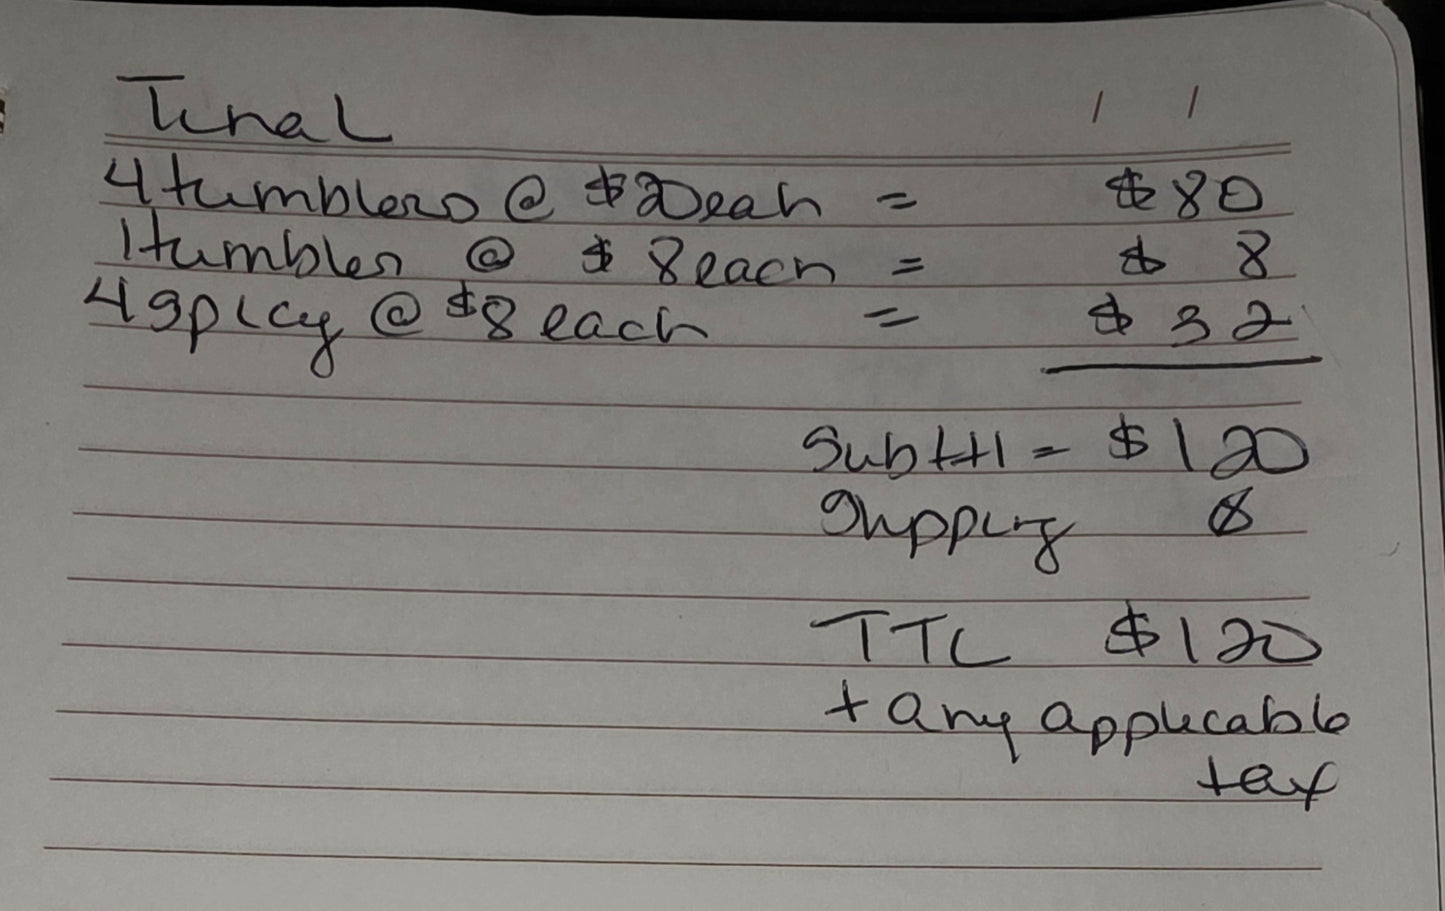 Final
4 tumblers @ $20 eah = $80
1 tumbler @ $ 8 each = $ 8
4 spicy @ $8 each = $ 32
Subttl = $120
Shipping Ø
TTL $120
+ any applicable
tax